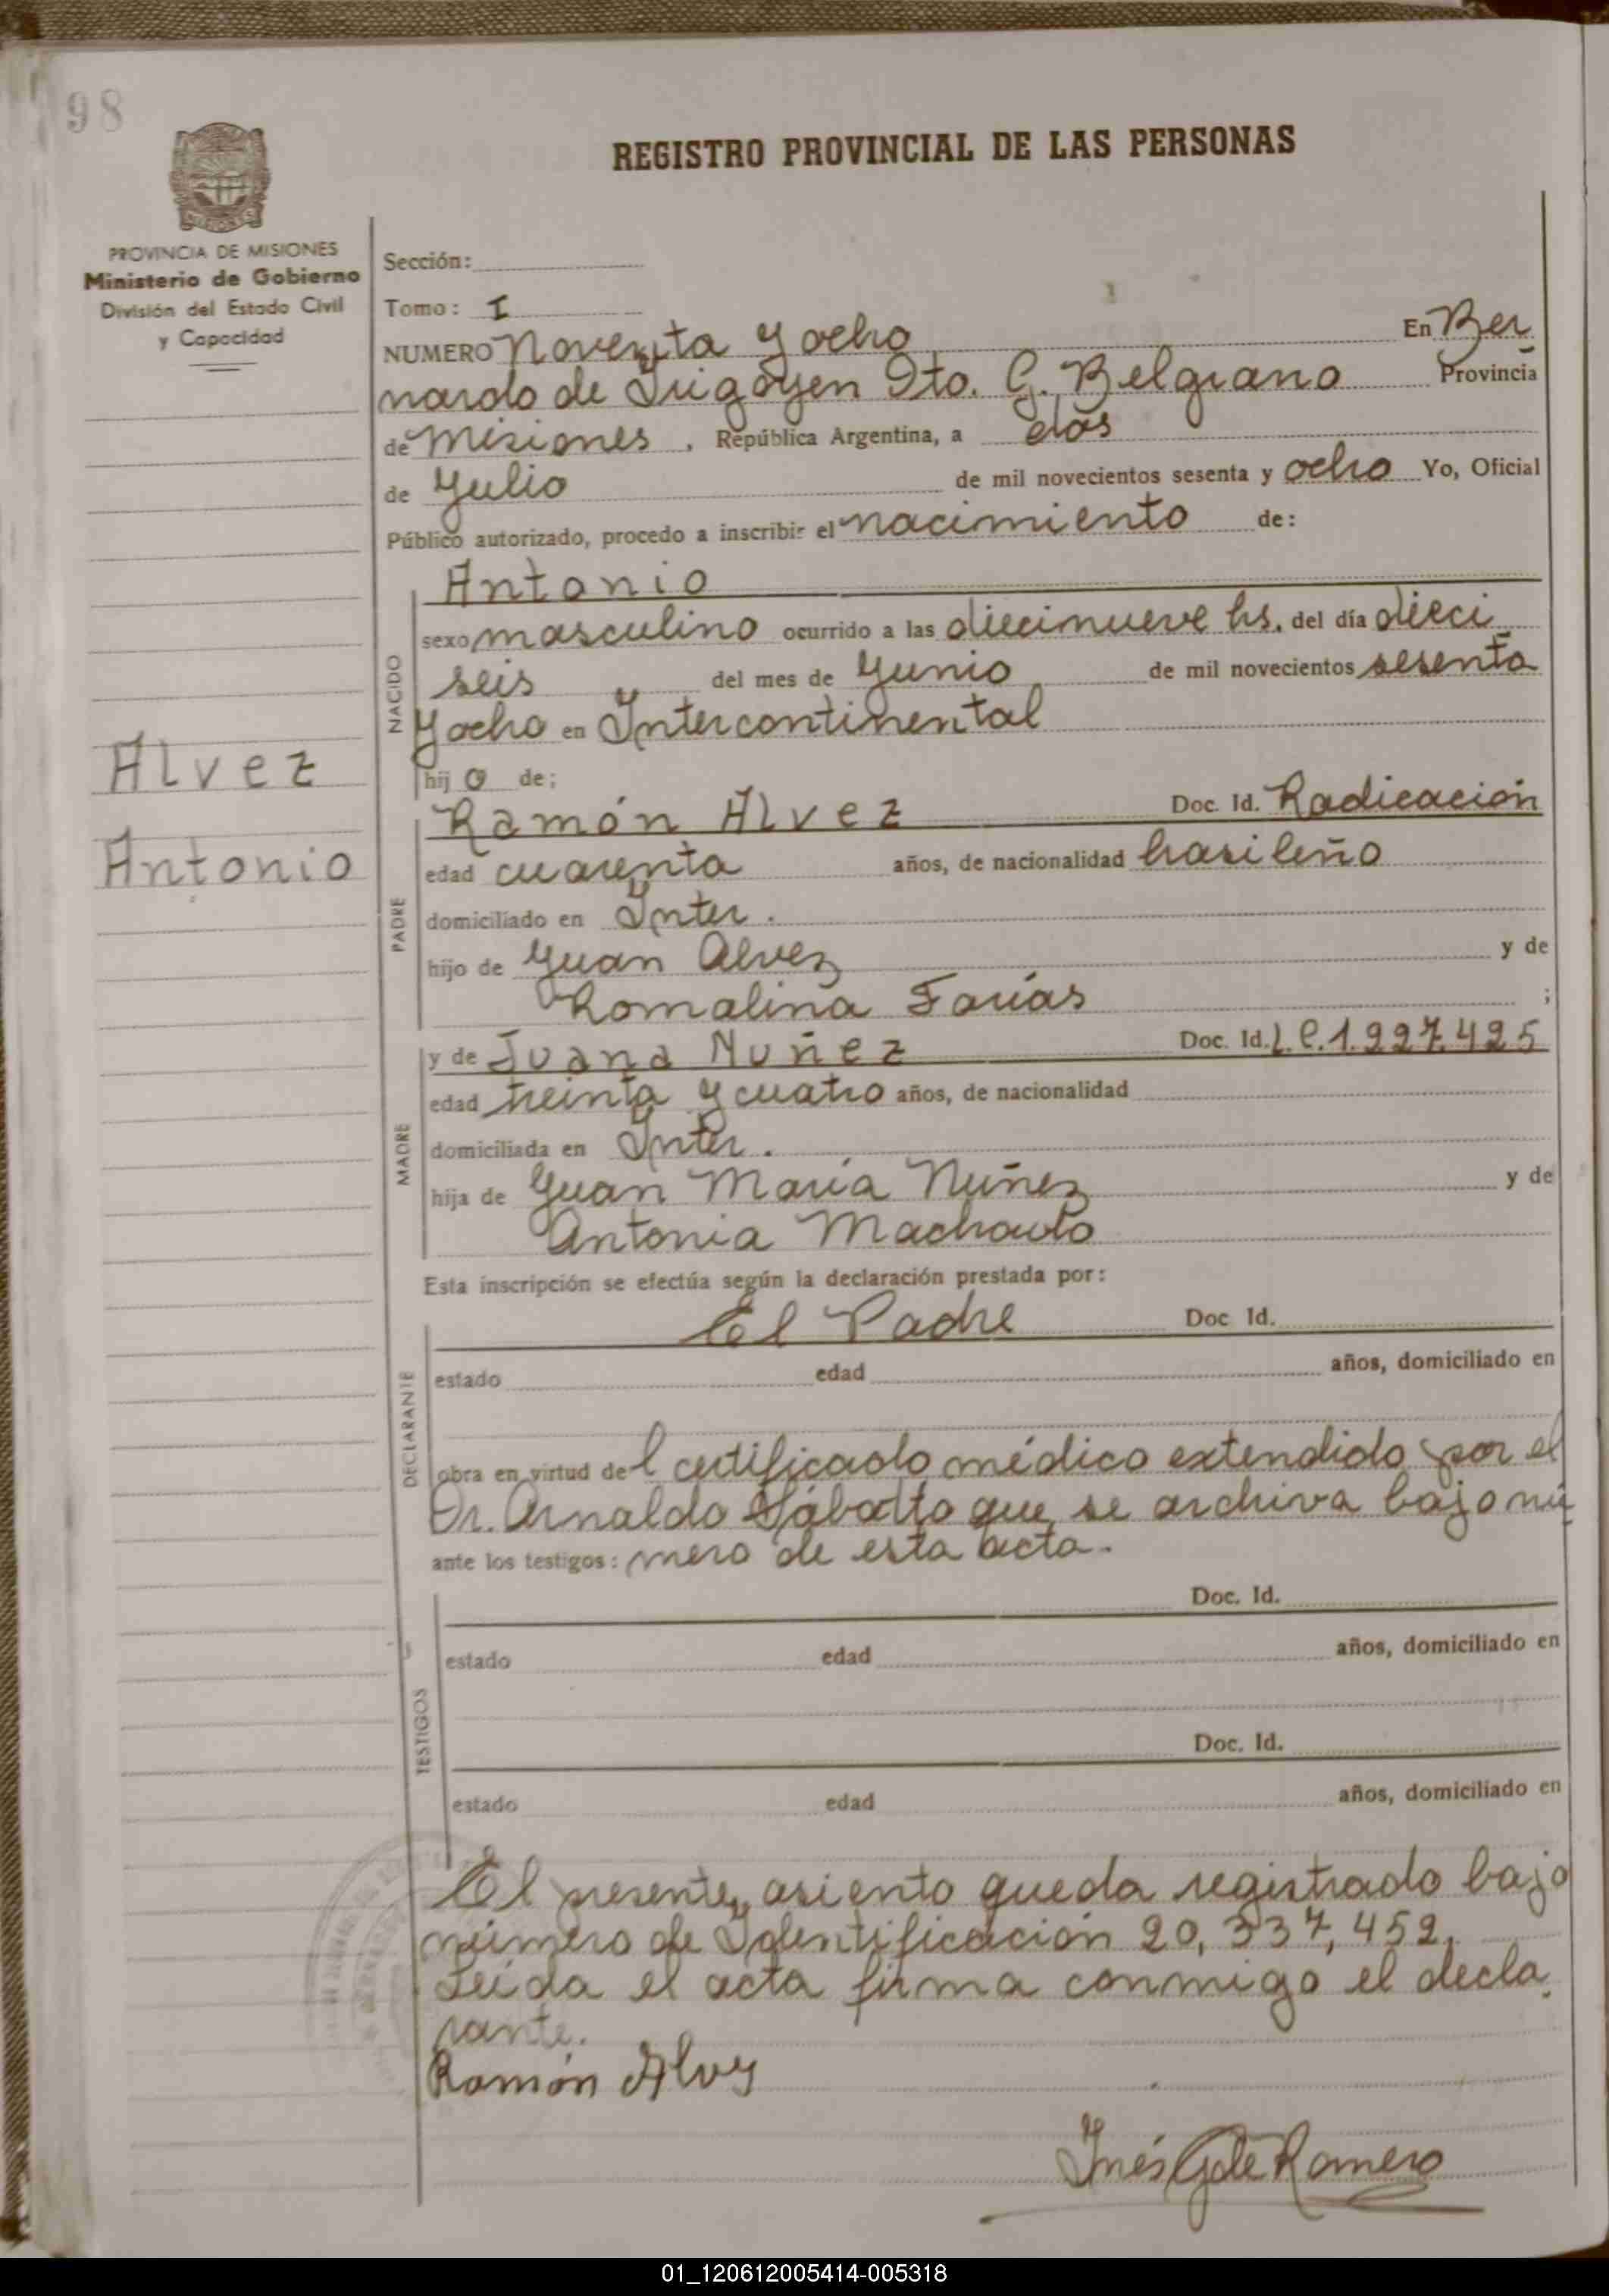 98
REGISTRO PROVINCIAL DE LAS PERSONAS
MISIONES
PROVINCIA DE MISIONES
Ministerio de Gobierno
División del Estado Civil
y Capacidad
Alvez
Antonio
Sección:
Tomo: I
NUMERO Noventa y ocho En Ber
nardo de Irigoyen Dto. G. Belgrano Provincia
de Misiones, República Argentina, a dos
de Julio de mil novecientos sesenta y ocho Yo, Oficial
Público autorizado, procedo a inscribir el nacimiento de:
NACIDO
Antonio
sexo masculino ocurrido a las diecinueve hs. del día dieci
seis del mes de Junio de mil novecientos sesenta
y ocho en Intercontinental
hijo de;
PADRE
Ramón Alvez Doc. Id. Radicación
edad cuarenta años, de nacionalidad brasileño
domiciliado en Inter.
hijo de Juan Alvez y de
Romalina Farías ;
MADRE
y de Juana Nuñez Doc. Id. L.C. 1.997.495
edad treinta y cuatro años, de nacionalidad
domiciliada en Inter.
hija de Juan María Nuñez y de
Antonia Machado
Esta inscripción se efectúa según la declaración prestada por:
DECLARANTE
El Padre Doc Id.
estado edad años, domiciliado en
obra en virtud del certificado médico extendido por el
Dr. Arnaldo Sábatto que se archiva bajo nú
ante los testigos: mero de esta acta.
TESTIGOS
Doc. Id.
estado edad años, domiciliado en
Doc. Id.
estado edad años, domiciliado en
El presente asiento queda registrado bajo
número de Identificación 20,337,452.
Leida el acta firma conmigo el decla
rante.
Ramón Alvez
Inés G de Romero
01_120612005414-005318